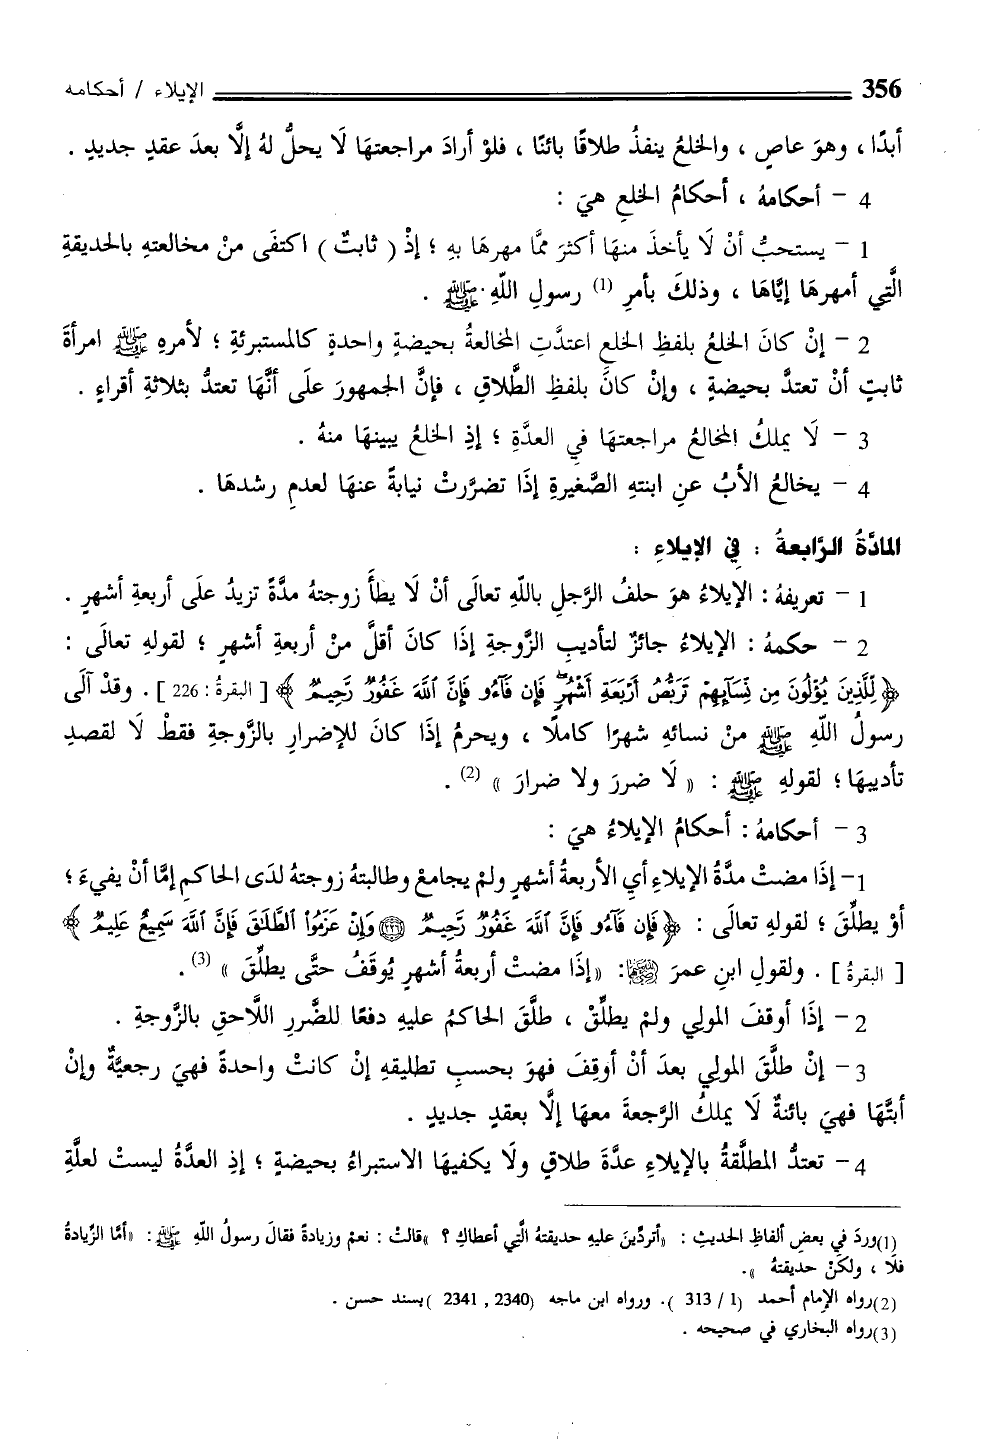 356 الإيلاء / أحكامه
أبدًا ، وهوَ عاصٍ ، والخلعُ ينفذُ طلاقًا بائنًا ، فلوْ أرادَ مراجعتهَا لَا يحلُّ لهُ إلَّا بعدَ عقدٍ جديدٍ .
4 - أحكامهُ ، أحكامُ الخلعِ هيَ :
1 - يستحبُّ أنْ لَا يأخذَ منهَا أكثرَ ممَّا مهرهَا بهِ ؛ إذْ ( ثابتٌ ) اكتفَى منْ مخالعتهِ بالحديقةِ
الَّتِي أمهرهَا إيَّاهَا ، وذلكَ بأمرِ (1) رسولِ اللهِ ﷺ .
2 - إنْ كانَ الخلعُ بلفظِ الخلعِ اعتدَّتِ المخالعةُ بحيضةٍ واحدةٍ كالمستبرئةِ ؛ لأمرهِ ﷺ امرأةَ
ثابتٍ أنْ تعتدَّ بحيضةٍ ، وإنْ كانَ بلفظِ الطَّلاقِ ، فإنَّ الجمهورَ علَى أنَّهَا تعتدُّ بثلاثةِ أقراءٍ .
3 - لَا يملكُ المخالعُ مراجعتهَا فِي العدَّةِ ؛ إذِ الخلعُ يبينهَا منهُ .
4 - يخالعُ الأبُ عنِ ابنتهِ الصَّغيرةِ إذَا تضرَّرتْ نيابةً عنهَا لعدمِ رشدهَا .
المادَّةُ الرَّابعةُ : فِي الإيلاءِ :
1 - تعريفهُ : الإيلاءُ هوَ حلفُ الرَّجلِ باللهِ تعالَى أنْ لَا يطأَ زوجتهُ مدَّةً تزيدُ علَى أربعةِ أشهرٍ .
2 - حكمهُ : الإيلاءُ جائزٌ لتأديبِ الزَّوجةِ إذَا كانَ أقلَّ منْ أربعةِ أشهرٍ ؛ لقولهِ تعالَى :
﴿ لِّلَّذِينَ يُؤْلُونَ مِن نِّسَآئِهِمْ تَرَبُّصُ أَرْبَعَةِ أَشْهُرٍۖ فَإِن فَآءُو فَإِنَّ ٱللَّهَ غَفُورٌ رَّحِيمٌ ﴾ [ البقرةُ : 226 ] . وقدْ آلَى
رسولُ اللهِ ﷺ منْ نسائهِ شهرًا كاملًا ، ويحرمُ إذَا كانَ للإضرارِ بالزَّوجةِ فقطْ لَا لقصدِ
تأديبهَا ؛ لقولهِ ﷺ : « لَا ضررَ ولا ضرارَ » (2) .
3 - أحكامهُ : أحكامُ الإيلاءُ هيَ :
1- إذَا مضتْ مدَّةُ الإيلاءِ أيِ الأربعةُ أشهرٍ ولمْ يجامعْ وطالبتهُ زوجتهُ لدَى الحاكمِ إمَّا أنْ يفيءَ ؛
أوْ يطلِّقَ ؛ لقولهِ تعالَى : ﴿ فَإِن فَآءُو فَإِنَّ ٱللَّهَ غَفُورٌ رَّحِيمٌ ۝٢٢٦ وَإِنْ عَزَمُوا۟ ٱلطَّلَٰقَ فَإِنَّ ٱللَّهَ سَمِيعٌ عَلِيمٌ ﴾
[ البقرةُ ] . ولقولِ ابنِ عمرَ : «إذَا مضتْ أربعةُ أشهرٍ يُوقَفُ حتَّى يطلِّقَ » (3) .
2 - إذَا أوقفَ المولِي ولمْ يطلِّقْ ، طلَّقَ الحاكمُ عليهِ دفعًا للضَّررِ اللَّاحقِ بالزَّوجةِ .
3 - إنْ طلَّقَ المولِي بعدَ أنْ أوقِفَ فهوَ بحسبِ تطليقهِ إنْ كانتْ واحدةً فهيَ رجعيَّةٌ وإنْ
أبتَّهَا فهيَ بائنةٌ لَا يملكُ الرَّجعةَ معهَا إلَّا بعقدٍ جديدٍ .
4 - تعتدُّ المطلَّقةُ بالإيلاءِ عدَّةَ طلاقٍ ولَا يكفيهَا الاستبراءُ بحيضةٍ ؛ إذِ العدَّةُ ليستْ لعلَّةِ
(1)وردَ فِي بعضِ ألفاظِ الحديثِ : «أتردِّينَ عليهِ حديقتهُ الَّتِي أعطاكِ ؟ »قالتْ : نعمْ وزيادةً فقالَ رسولُ اللهِ ﷺ : «أمَّا الزِّيادةُ
فلَا ، ولكنْ حديقتهُ ».
(2)رواه الإمام أحمد (1 / 313 ). ورواه ابن ماجه (2340 , 2341 )بسند حسن .
(3)رواه البخاري في صحيحه .